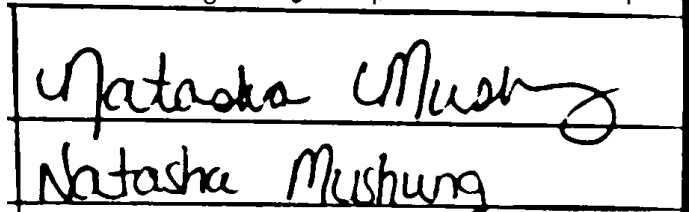 Natasha Mushung
Natasha Mushung